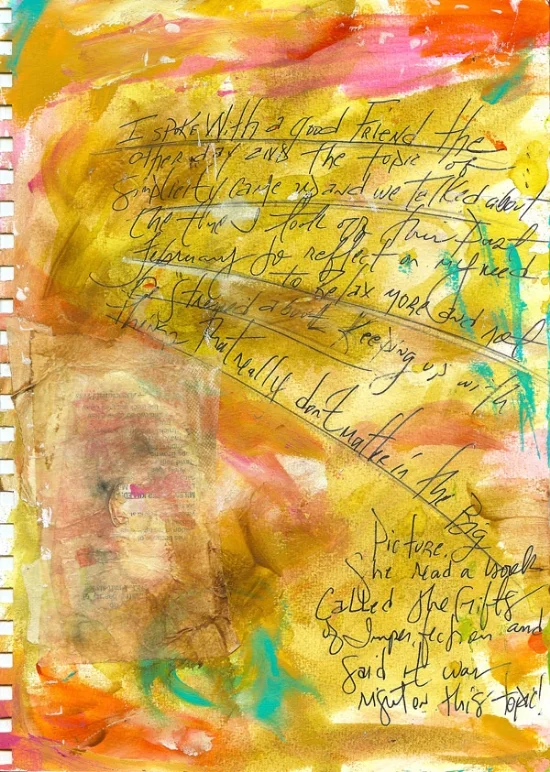 I spoke with a good friend the
other day and the topic of
Simplicity came up and we talked about
the time I took off this past
February to reflect on my need
to relax more and not
be stressed about keeping up with
things that really don't matter in the Big
Picture.
She read a work
called the Gifts
of Imperfection and
said it was
right on this topic!